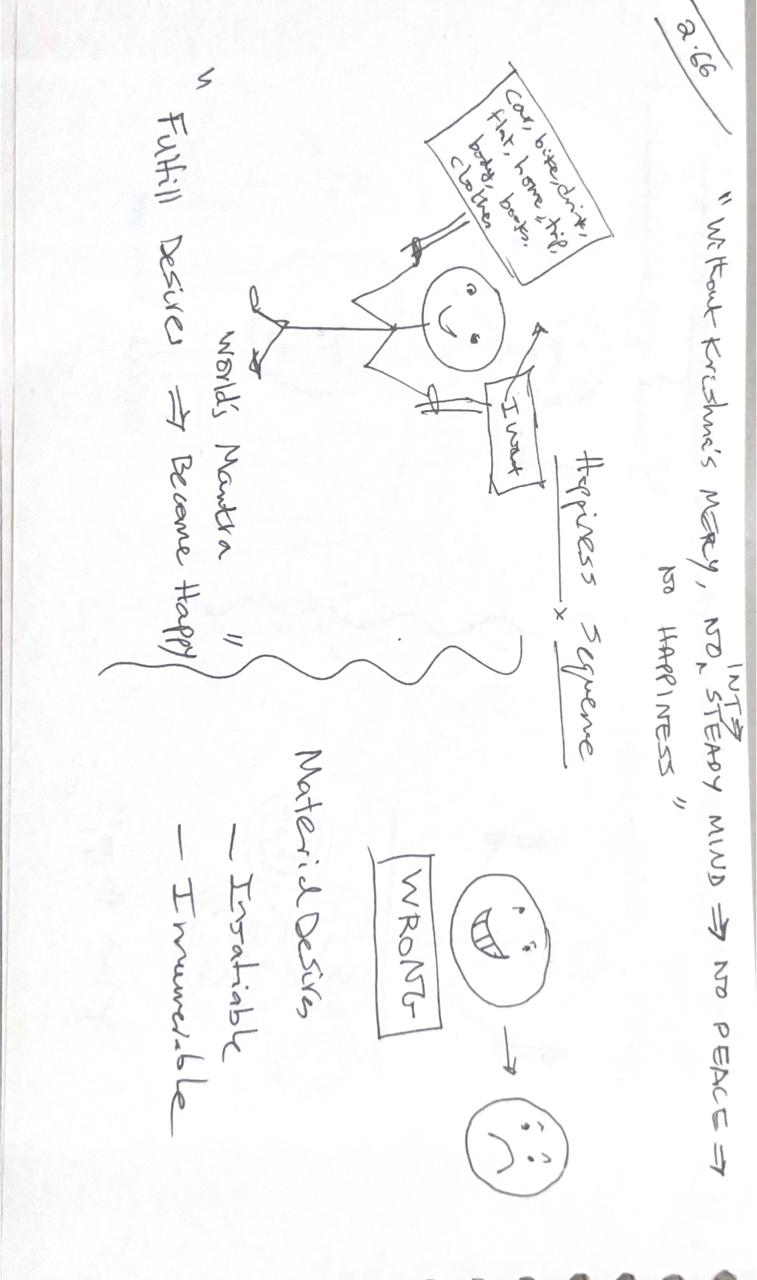 2.66
"Without Krishna's MERCY, NO INT ⇒ STEADY MIND ⇒ NO PEACE ⇒
NO HAPPINESS"
Happiness Sequence
I want
car, bike, drink,
flat, home, trip,
body, books,
clothes
World's Mantra
"Fulfill Desires ⇒ Become Happy"
WRONG
Material Desires
— Insatiable
— Innumerable